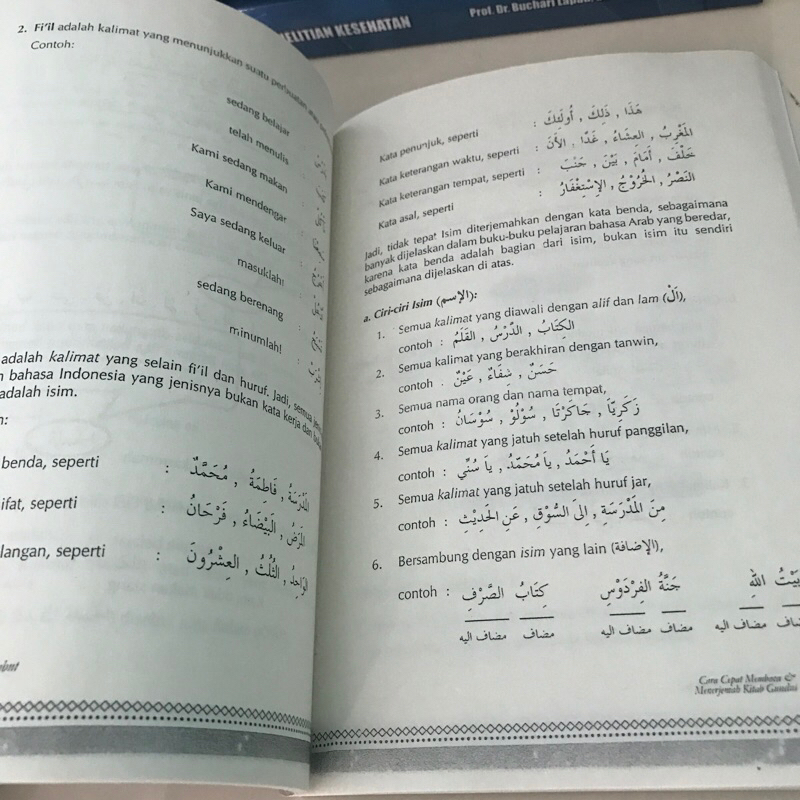 ELITIAN KESEHATAN
Prof. Dr. Buchari
2. Fi'il adalah kalimat yang menunjukkan suatu perbuatan atau
Contoh:
sedang belajar :
telah menulis :
Kami sedang makan :
Kami mendengar :
Saya sedang keluar :
masuklah! :
sedang berenang :
minumlah! :
adalah kalimat yang selain fi'il dan huruf. Jadi, semua
bahasa Indonesia yang jenisnya bukan kata kerja dan
adalah isim.
benda, seperti : مُحَمَّدٌ , فَاطِمَةُ , الْمَدْرَسَةُ
ifat, seperti : فَرْحَانُ , الْبَيْضَاءُ , الْمَرَضُ
langan, seperti : الْعِشْرُونَ , الثُّلُثُ , الْوَاحِدُ
Kata penunjuk, seperti : هَذَا , ذَلِكَ , أُولَئِكَ
Kata keterangan waktu, seperti : الْمَغْرِبُ , الْعِشَاءُ , غَدًا , الْأَنَ
Kata keterangan tempat, seperti : خَلْفَ , أَمَامَ , بَيْنَ , جَنْبَ
Kata asal, seperti : النَّصْرُ , الْخُرُوْجُ , الْإِسْتِغْفَارُ
Jadi, tidak tepat Isim diterjemahkan dengan kata benda, sebagaimana
banyak dijelaskan dalam buku-buku pelajaran bahasa Arab yang beredar,
karena kata benda adalah bagian dari isim, bukan isim itu sendiri
sebagaimana dijelaskan di atas.
a. Ciri-ciri Isim (الإسم):
1. Semua kalimat yang diawali dengan alif dan lam (اَلْ),
contoh : الْكِتَابُ , الدَّرْسُ , الْقَلَمُ
2. Semua kalimat yang berakhiran dengan tanwin,
contoh : حَسَنٌ , شِفَاءٌ , عَيْنٌ
3. Semua nama orang dan nama tempat,
contoh : زَكَرِيَّا , جَاكَرْتَا , سُوْلُوْ , سُوْسَانُ
4. Semua kalimat yang jatuh setelah huruf panggilan,
contoh : يَا أَحْمَدُ , يَا مُحَمَّدُ , يَا سُنِّي
5. Semua kalimat yang jatuh setelah huruf jar,
contoh : مِنَ الْمَدْرَسَةِ , اِلَى السُّوْقِ , عَنِ الْحَدِيْثِ
6. Bersambung dengan isim yang lain (الإضافة),
contoh : كِتَابُ الصَّرْفِ جَنَّةُ الْفِرْدَوْسِ بَيْتُ اللهِ
مضاف مضاف اليه مضاف مضاف اليه مضاف اليه
Cara Cepat Membaca &
Menerjemah Kitab Gundul